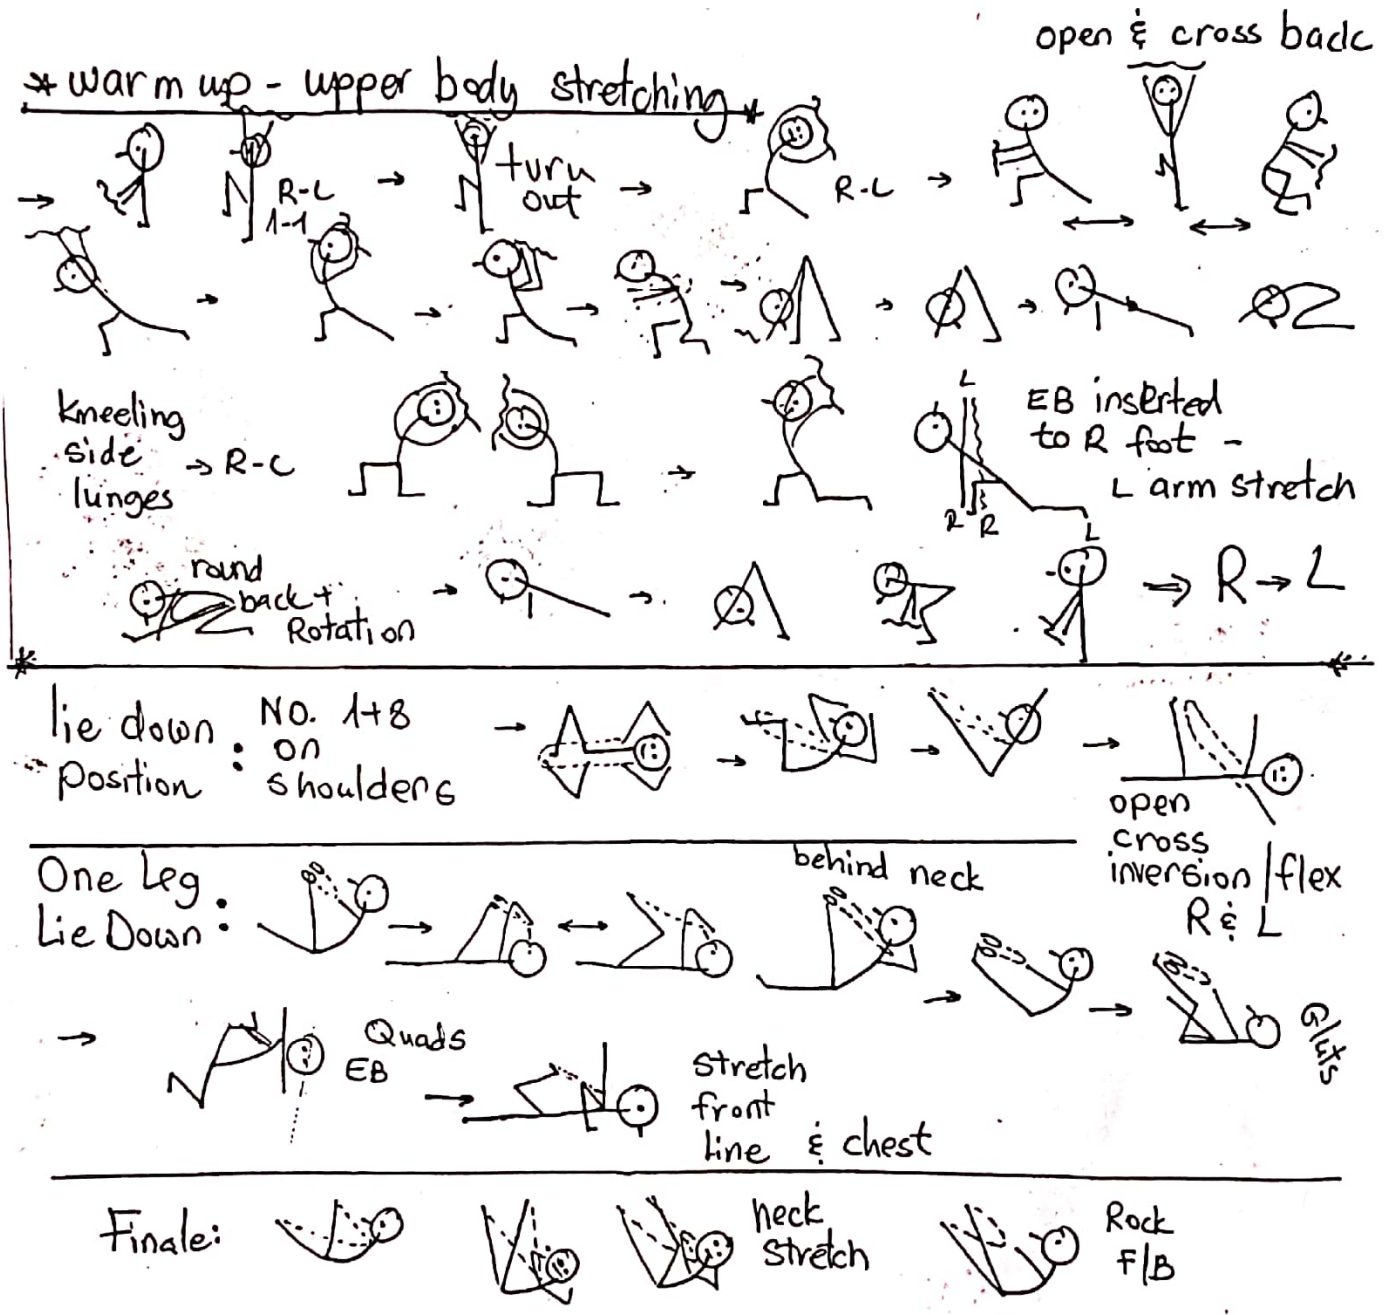 open & cross back
* warm up - upper body stretching *
R-L
1-1
turn
out
R-L
Kneeling
side
lunges
→ R-C
L
EB inserted
to R foot -
L arm stretch
R R
L
round
back +
Rotation
⇒ R → L
lie down
position :
NO. 1+8
on
shoulders
open
cross
inversion/flex
R & L
One Leg
Lie Down :
behind neck
Gluts
Quads
EB
Stretch
front
line & chest
Finale:
neck
stretch
Rock
F/B